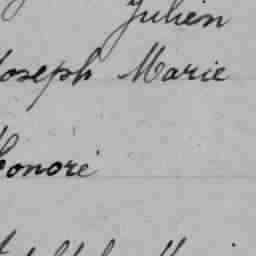 Julien
Joseph Marie
Honoré